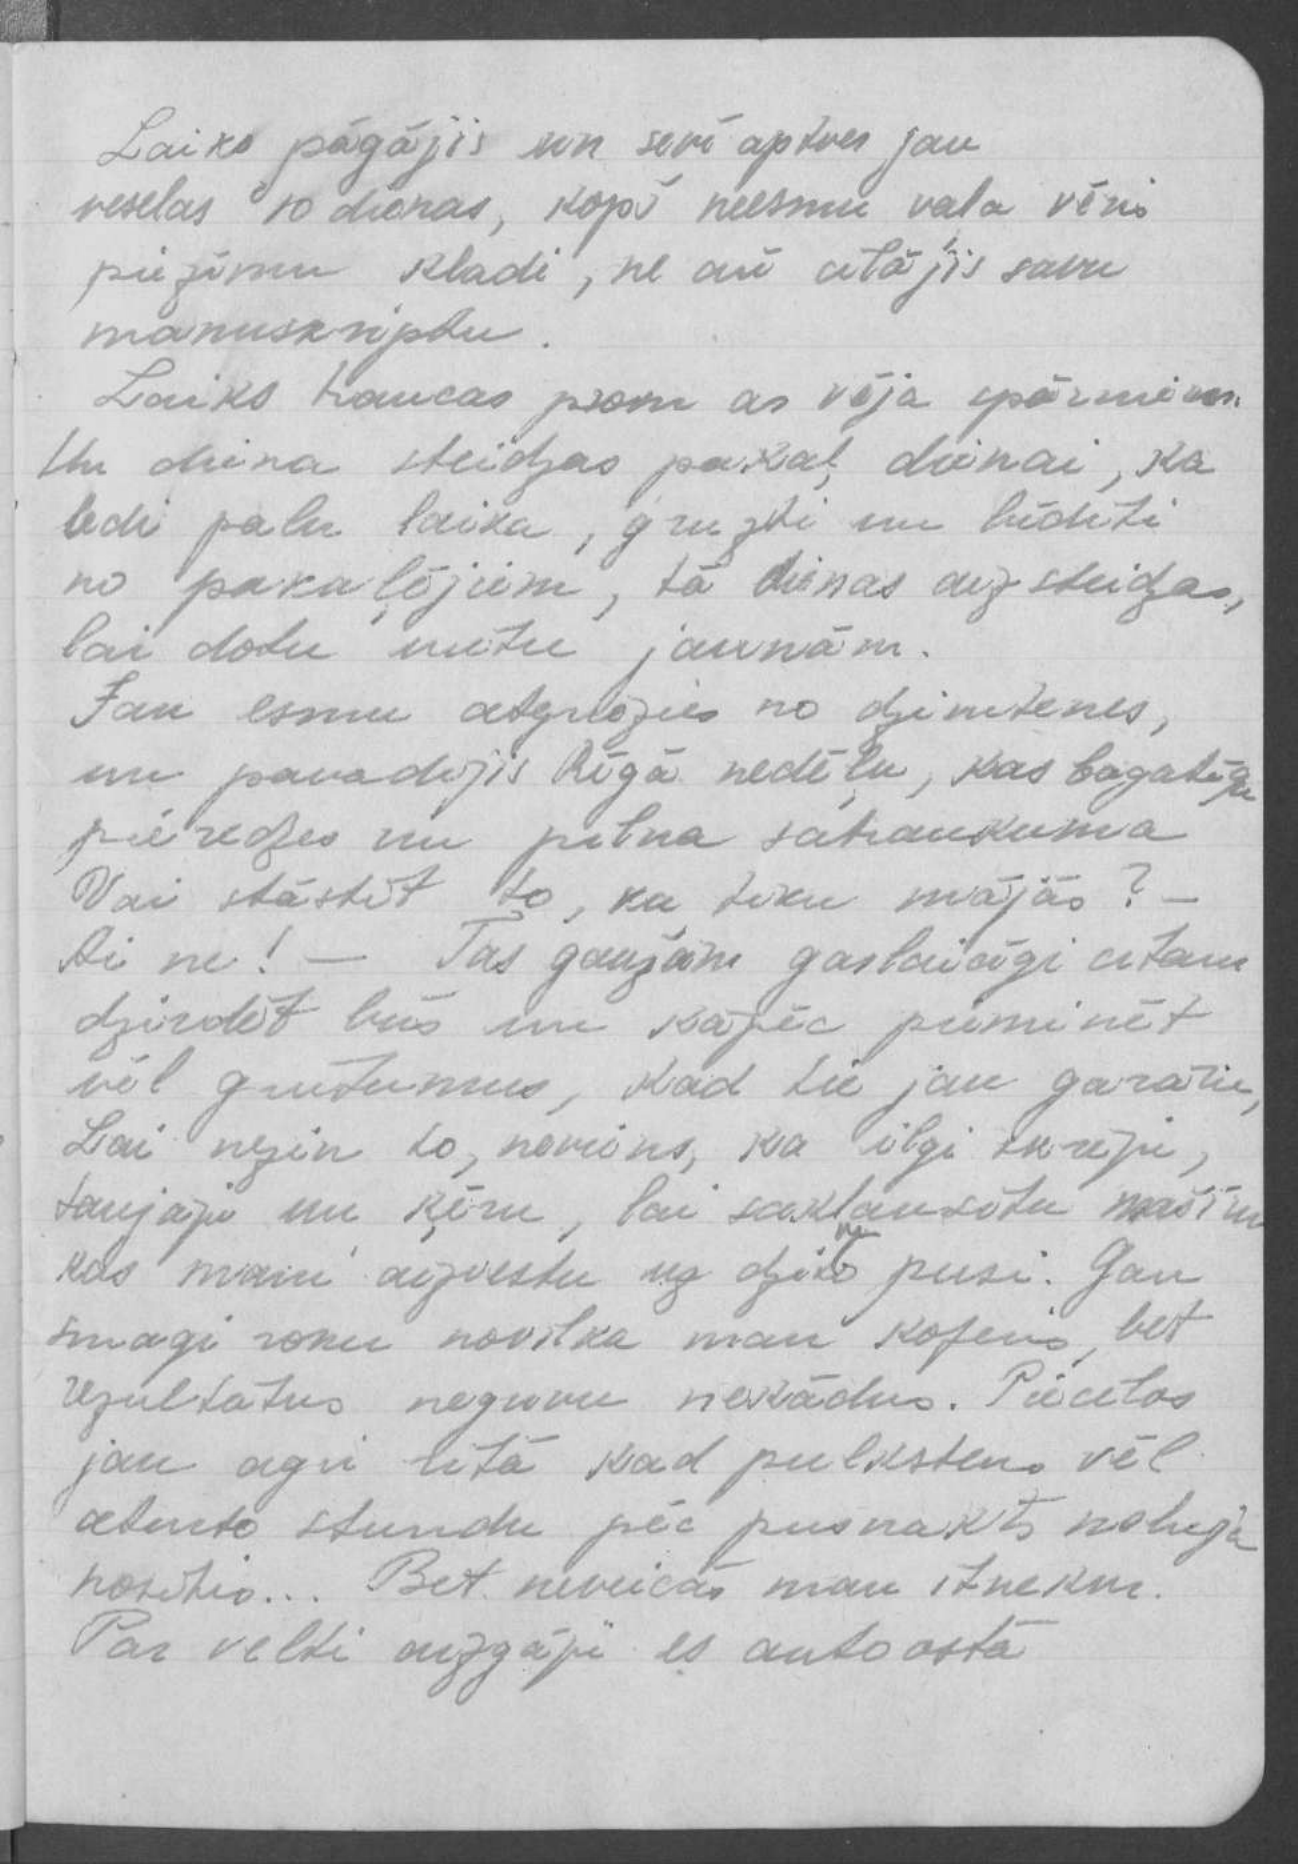 Laiks pagājis un sevī aptver jau
veselas 10 dienas, kopš neesmu vala vēris
piezīmu kladi, ne arī cilājis savu
manuskriptu.
Laiks traucas prom as vēja spārniem.
Un diena steidzas pakaļ dienai, ka
ledi palu laika, gruzti un bīdīti
no pakaļējiem, tā dienas aizsteidzas,
lai dotu vietu jaunām.
Jau esmu atgriezies no dzimtenes,
un pavadijis Rīgā nedēļu, kas bagatīga
pieredzes un pilna satraukuma
Vai stāstīt to, ka tiku mājās? –
Ai ne! – Tas gaužām garlaicīgi citam
dzirdēt būs un kāpēc pieminēt
vēl grūtumus, kad tie jau garām,
Lai nezin to, neviens, ka ilgi skrēju,
taujāju un ķēru, lai saklausītu mašīnu
kas mani aizvestu uz dzimto pusi. Gan
smagi roku novilka man koferis, bet
rezultātus neguvu nekādus. Piecēlos
jau agri rītā kad pulkstens vēl
ceturto stundu pēc pusnakts nebija
nositis... Bet neveicās man itnekur.
Par velti aizgāju es autoostā